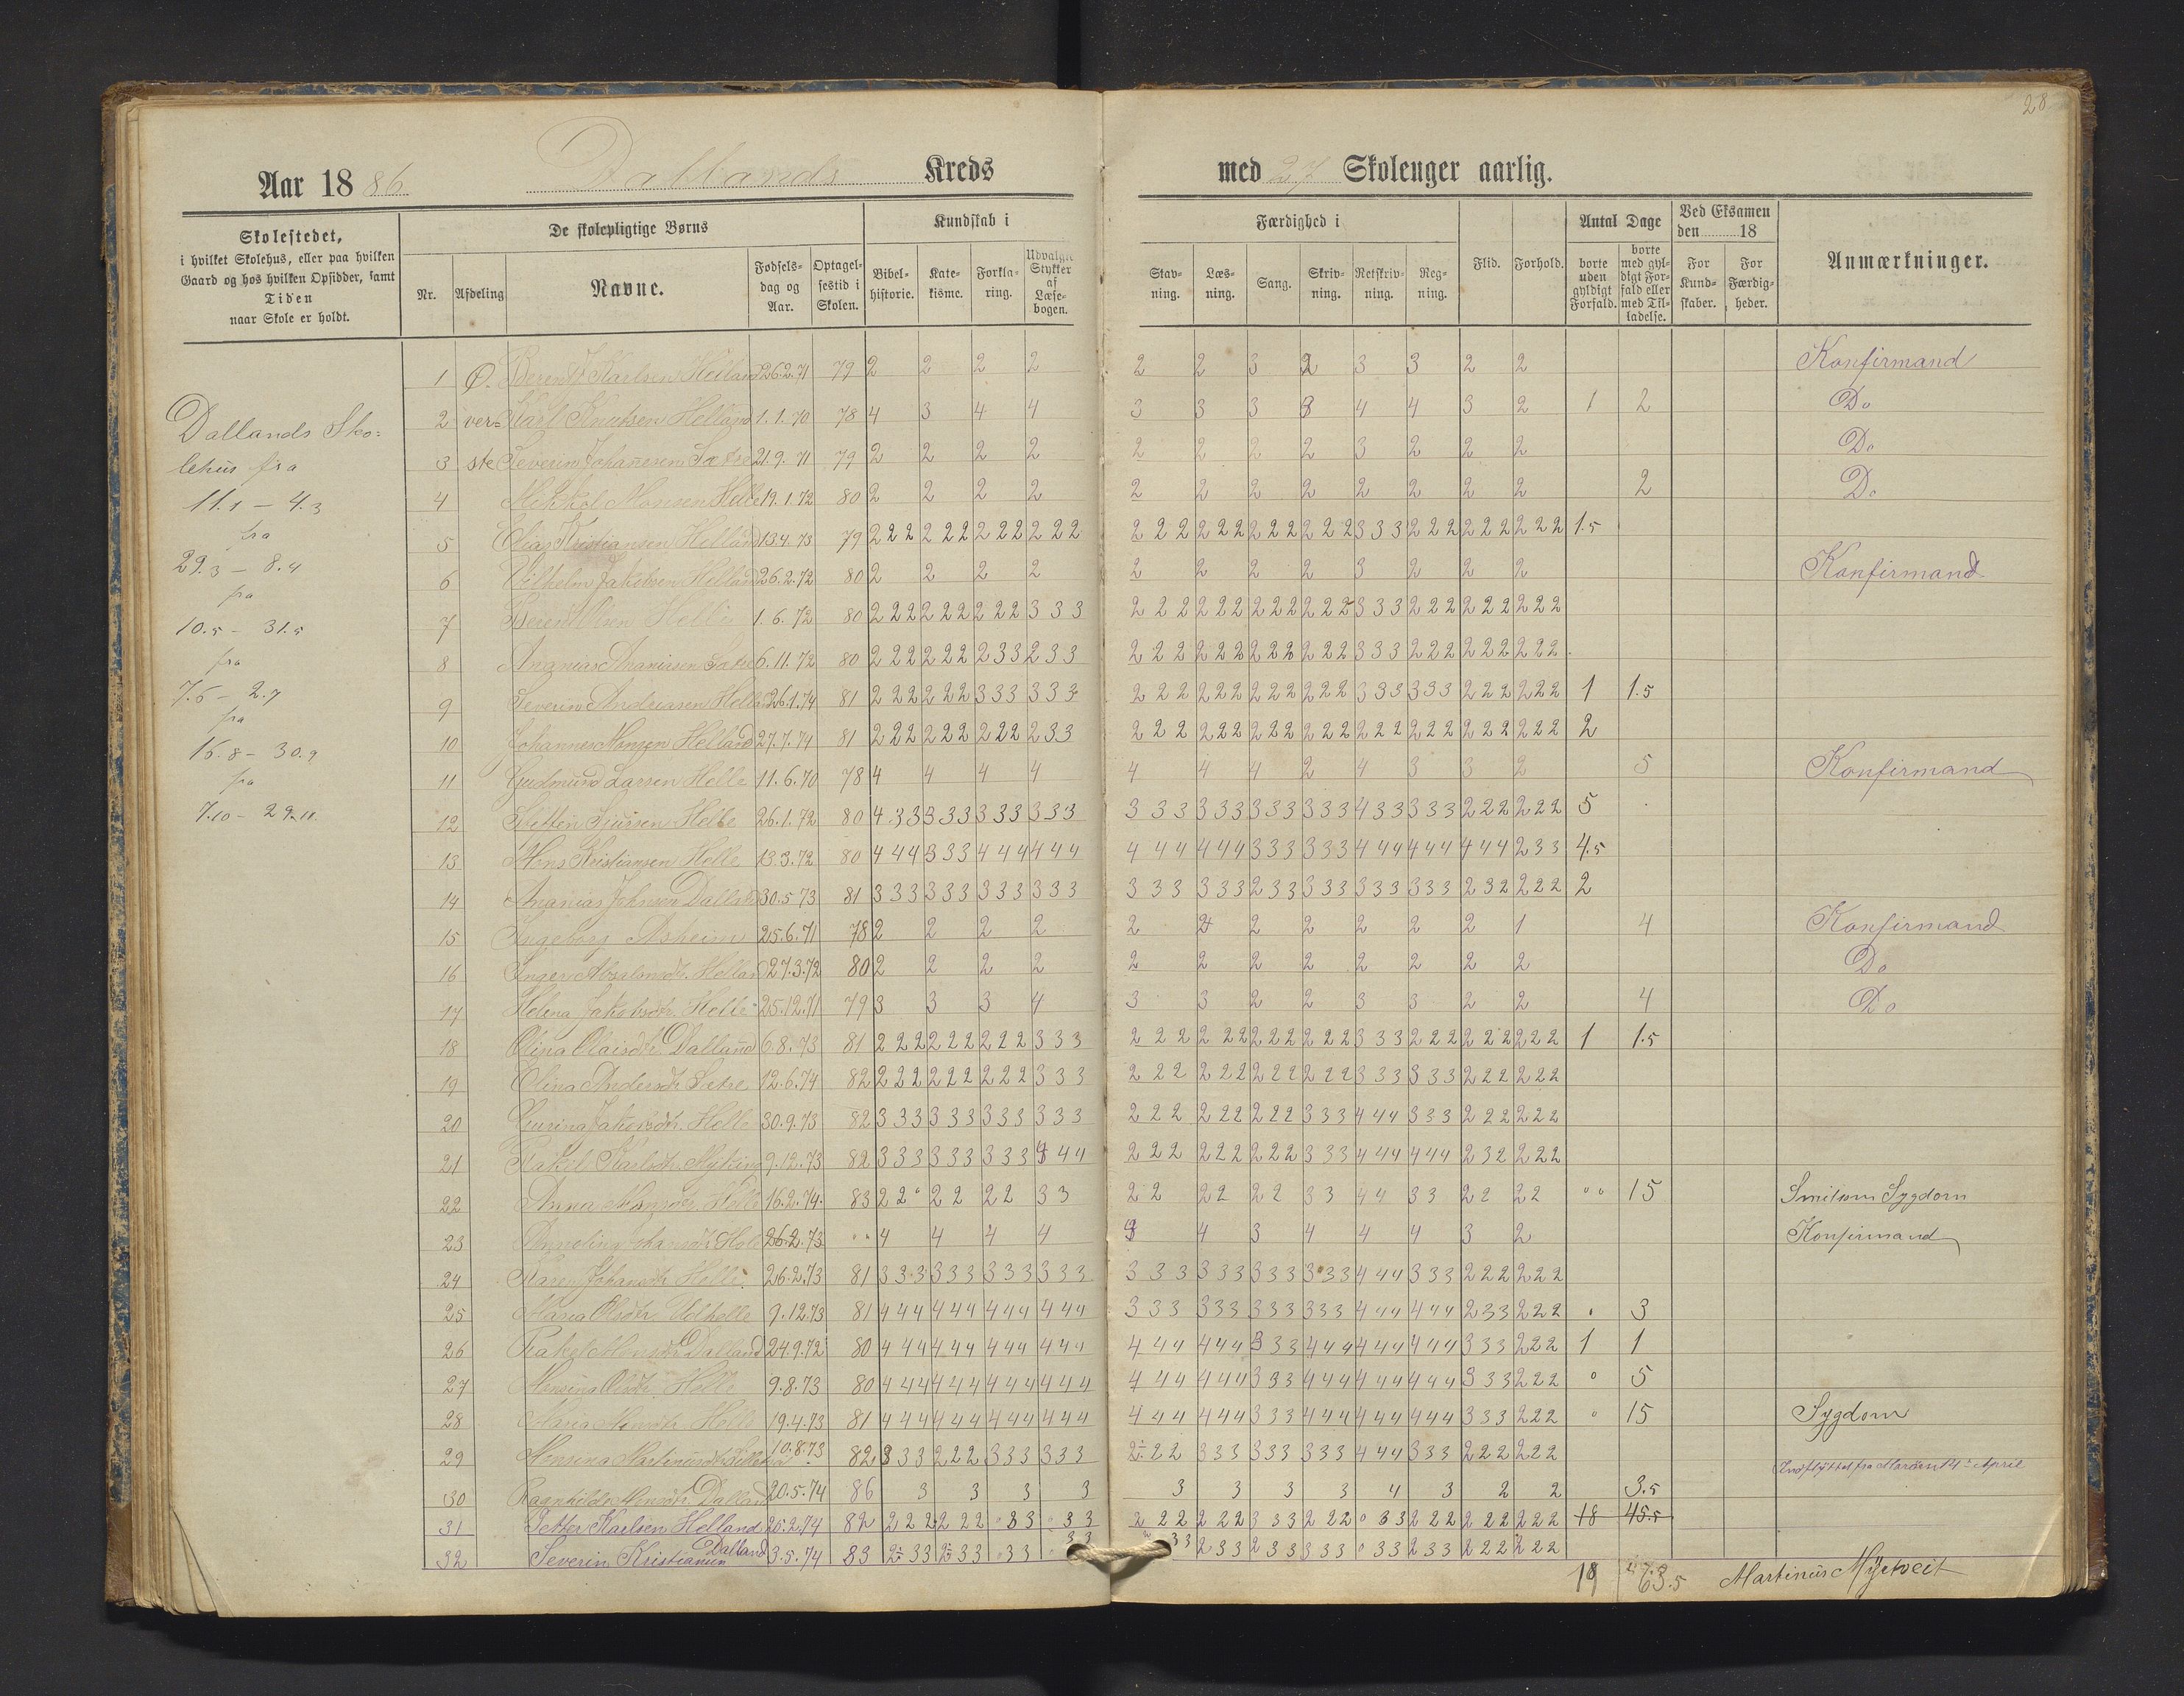 28
Aar 1886 Dallands Kreds med 27 Skolenger aarlig.
Skolestedet,
i hvilket Skolehus, eller paa hvilken
Gaard og hos hvilken Opsidder, samt
Tiden
naar Skole er holdt.
De skolepligtige Børns
Nr.
Afdeling
Navne.
Fødsels-
dag og
Aar.
Optagel-
sestid i
Skolen.
Kundskab i
Bibel-
historie.
Kate-
kisme.
Forkla-
ring.
Udvalgte
Stykker
af
Læse-
bogen.
Færdighed i
Stav-
ning.
Læs-
ning.
Sang.
Skriv-
ning.
Retskriv-
ning.
Reg-
ning.
Flid.
Forhold.
Antal Dage
borte
uden
gyldigt
Forfald.
borte
med gyl-
digt For-
fald eller
med Til-
ladelse.
Ved Eksamen
den 18
For
Kund-
skaber.
For
Færdig-
heder.
Anmærkninger.
Dallands Sko-
lehus fra
11.1 - 4.3
fra
29.3 - 8.4
fra
10.5 - 31.5
fra
7.6 - 2.7
fra
16.8 - 30.9
fra
7.10 - 29.11
1 Ø. Berent Karlsen Helland 26.2.71 79 2 2 2 2 2 2 3 2 3 3 2 2 Konfirmand
2 ver= Karl Knutsen Helland 1.1.70 78 4 3 4 4 3 3 3 3 4 4 3 2 1 2 Do
3 ste Severin Johanesen Sætre 21.9.71 79 2 2 2 2 2 2 2 2 3 2 2 2 Do
4 Mikkel Monsen Helle 19.1.72 80 2 2 2 2 2 2 2 2 2 2 2 2 2 Do
5 Elias Kristiansen Helland 13.4.73 79 222 222 222 222 222 222 222 222 333 222 222 222 1.5
6 Vilhelm Jakobsen Helland 26.2.72 80 2 2 2 2 2 2 2 2 3 2 2 2 Konfirmand
7 Berent Olsen Helle 1.6.72 80 222 222 222 333 222 222 222 222 333 222 222 222
8 Ananias Ananiasen Sætre 6.11.72 80 222 222 233 233 222 222 222 222 333 222 222 222
9 Severin Andreasen Helle 26.1.74 81 222 222 333 333 222 222 222 222 333 333 222 222 1 1.5
10 Johannes Monsen Helland 27.7.74 81 222 222 222 233 222 222 222 222 222 222 222 222 2
11 Gudmund Larsen Helle 11.6.70 78 4 4 4 4 4 4 4 2 4 3 3 2 5 Konfirmand
12 Sjursen Helle 26.1.72 80 433 333 333 333 333 333 333 333 433 333 222 222 5
13 Mons Kristiansen Helle 13.3.72 80 444 333 444 444 444 444 333 333 444 444 444 233 4.5
14 Ananias Johnsen Dalland 30.5.73 81 333 333 333 333 333 333 233 333 333 333 232 222 2
15 Ingeborg Asheim 25.6.71 78 2 2 2 2 2 2 2 2 2 2 2 1 4 Konfirmand
16 Inger Absalonsdtr. Helland 27.3.72 80 2 2 2 2 2 2 2 2 2 2 2 2 Do
17 Helena Jakobsdtr. Helle 25.12.71 79 3 3 3 4 3 3 2 2 3 3 2 2 4 Do
18 Olina Olaisdtr. Dalland 6.8.73 81 222 222 222 333 222 222 222 222 333 222 222 222 1 1.5
19 Olina Andersdtr. Sætre 12.6.74 82 222 222 222 333 222 222 222 222 333 333 222 222
20 Jakobsdtr. Helle 30.9.73 82 333 333 333 333 222 222 222 333 444 333 222 222
21 Rakel Karlsdtr. Myking 9.12.73 82 333 333 333 444 222 222 222 333 444 444 232 222
22 Anna Monsdtr. Helle 16.2.74 83 22 22 22 33 22 22 22 33 44 33 22 22 " 15 Smitsom Sygdom
23 Johansdtr. Helle 26.2.73 " 4 4 4 4 3 4 3 4 4 4 3 2 Konfirmand
24 Karen Johansdtr. Helle 26.2.73 81 333 333 333 333 333 333 333 333 444 333 222 222
25 Maria Olsdtr. Udhelle 9.12.73 81 444 444 444 444 333 333 333 333 444 444 233 222 3
26 Rakel Monsdtr. Dalland 24.9.72 80 444 444 444 444 444 444 333 444 444 444 333 222 1 1
27 Mensina Olsdtr. Helle 9.8.73 80 444 444 444 444 444 444 333 444 444 444 333 222 0 5
28 Maria Monsdtr. Helle 19.4.73 81 444 444 444 444 444 444 333 444 444 444 333 222 0 15 Sygdom
29 Monsina Martinusdtr. 10.8.73 82 333 222 333 333 222 333 333 333 444 333 222 222
30 Ragnhilda Monsdtr. Dalland 20.5.74 86 3 3 3 3 3 3 3 3 4 3 2 2 3.5 Indflyttet fra 14de April
31 Petter Karlsen Helland 25.2.74 82 222 222 033 033 222 222 333 222 033 222 222 222 18 45.5
32 Severin Kristiansen Dalland 3.5.74 83 233 233 033 33 233 233 233 333 033 233 222 222
19 63.5 Martinus Myrtveit